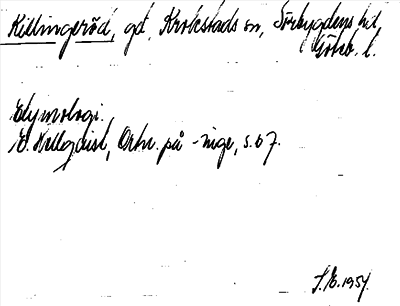 Killingeröd, gd, Krokstads sn, Sörbygdens hd,
Göteb. l.
Etymologi.
E. Hellquist, Ortn. på -inge, s. 67.
J.E. 1954.